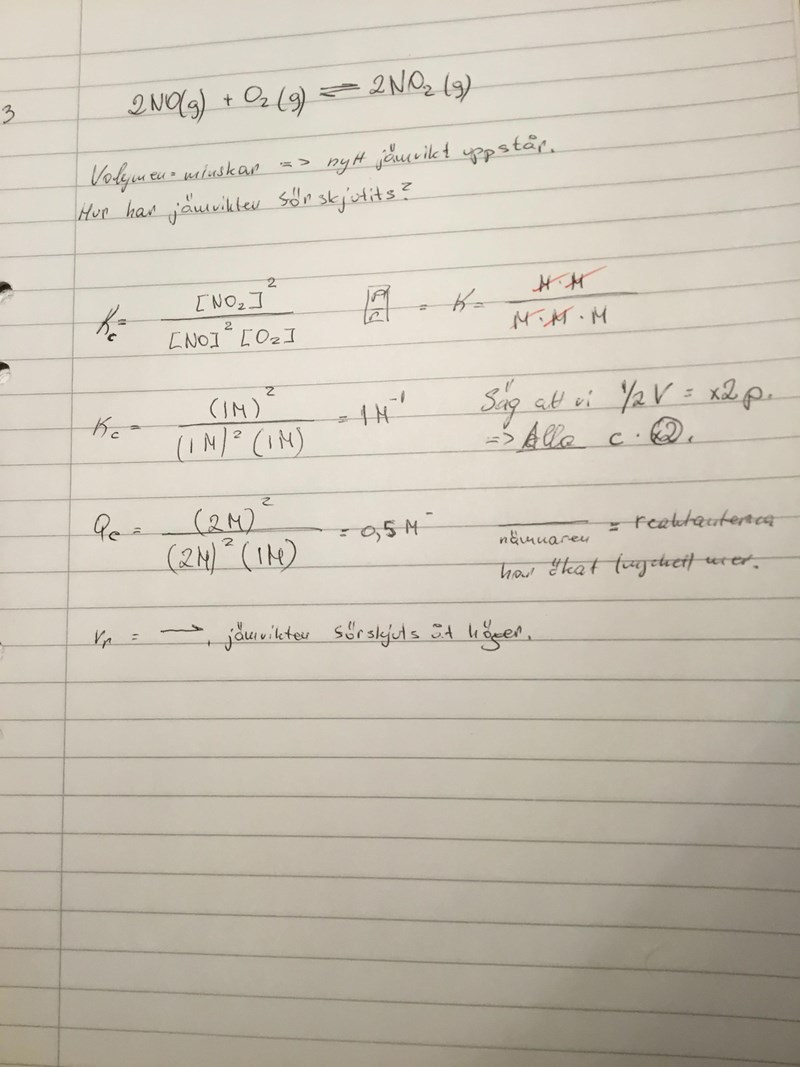 3
2NO(g) + O₂(g) ⇌ 2NO₂(g)
Volymen = minskar => nytt jämvikt uppstår.
Hur har jämvikten förskjutits?
Kc = [NO₂]² / [NO]² [O₂] = K = M·M / M·M·M
Kc = (1M)² / (1M)² (1M) = 1M⁻¹ Säg att vi 1/2 V = x2 p.
=> Alla c · 2.
Qc = (2M)² / (2M)² (1M) = 0,5 M⁻ nämnaren = reaktanterna
har ökat mycket mer.
vr = →, jämvikten förskjuts åt höger.